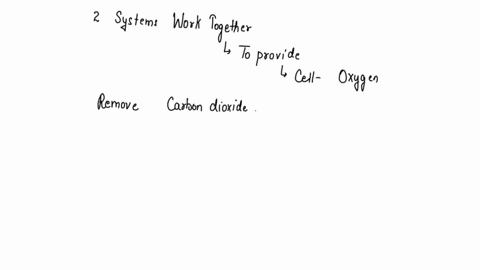 2 Systems Work Together
↳ To provide
↳ Cell- Oxygen
Remove Carbon dioxide.